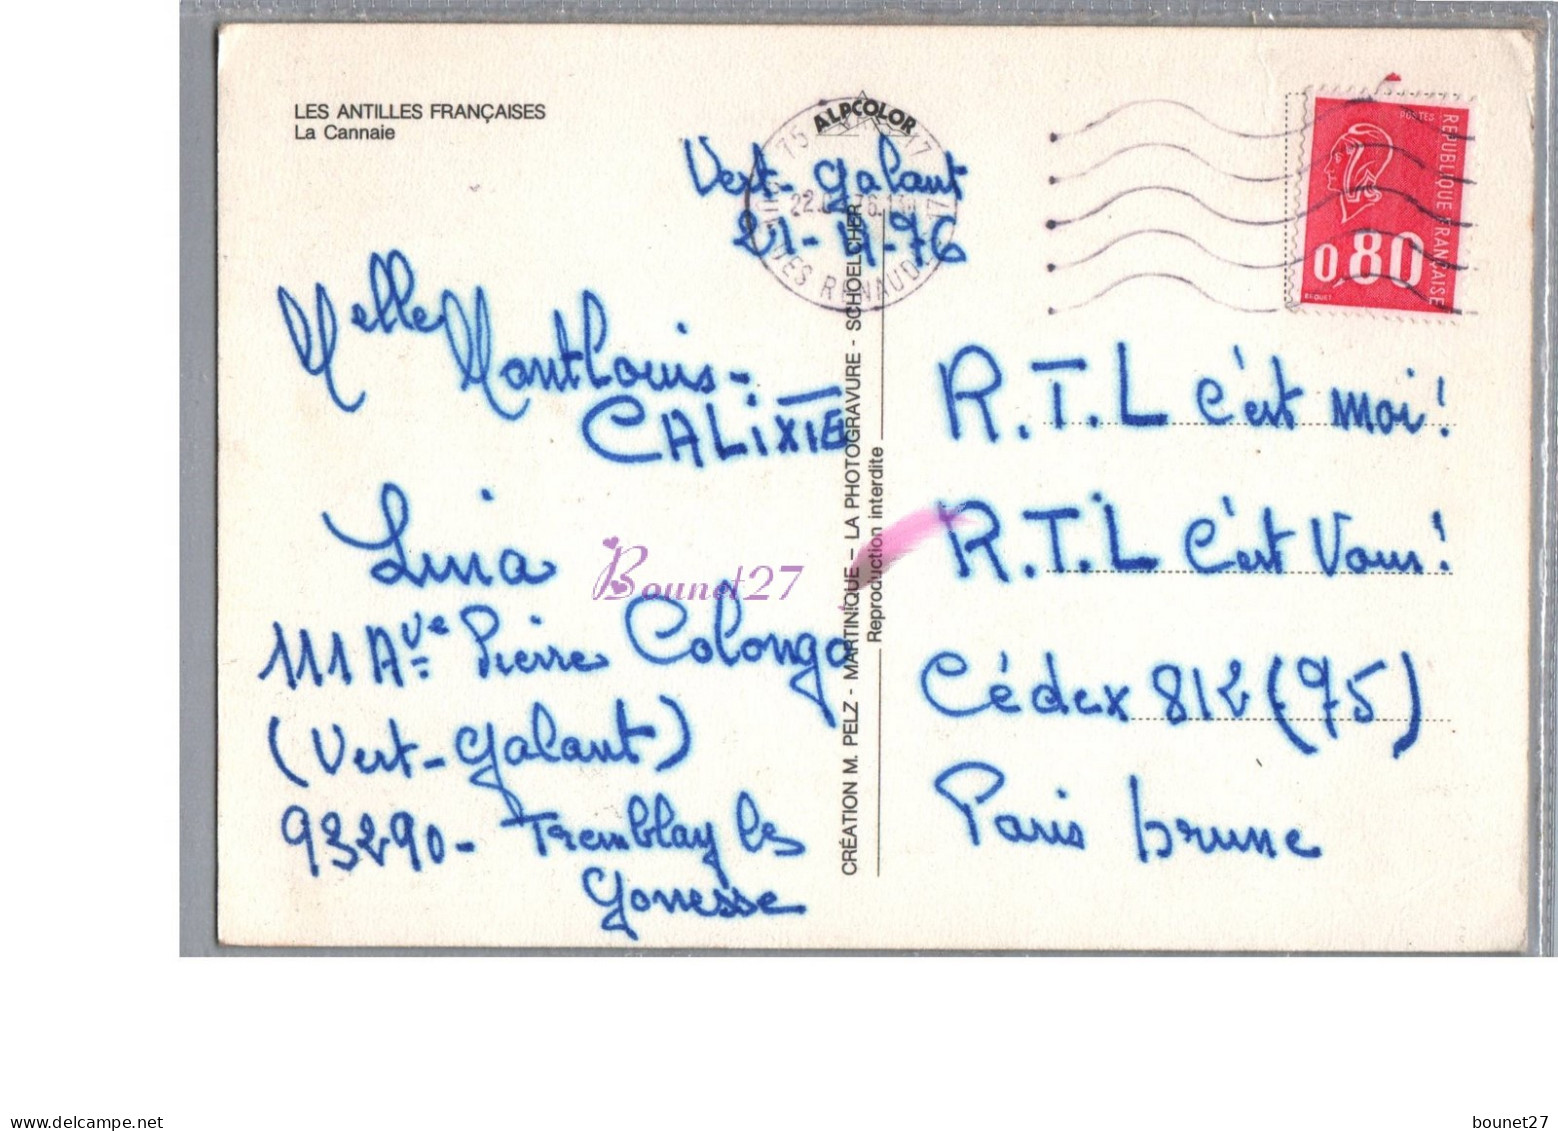 LES ANTILLES FRANÇAISES
La Cannaie
ALPCOLOR
Vert-galant
21-11-76
Melle Montlouis-
CALIXTE
Lina
111 Ave Pierre Colongo
(Vert-galant)
93290- Tremblay les
gonesse
CRÉATION M. PELZ - MARTINIQUE - LA PHOTOGRAVURE - SCHOELCHER
Reproduction interdite
REPUBLIQUE FRANÇAISE
POSTES
0,80
BEQUET
R.T.L c'est moi!
R.T.L c'est Vous!
Cédex 812 (75)
Paris brune
Bounet27
bounet27
www.delcampe.net